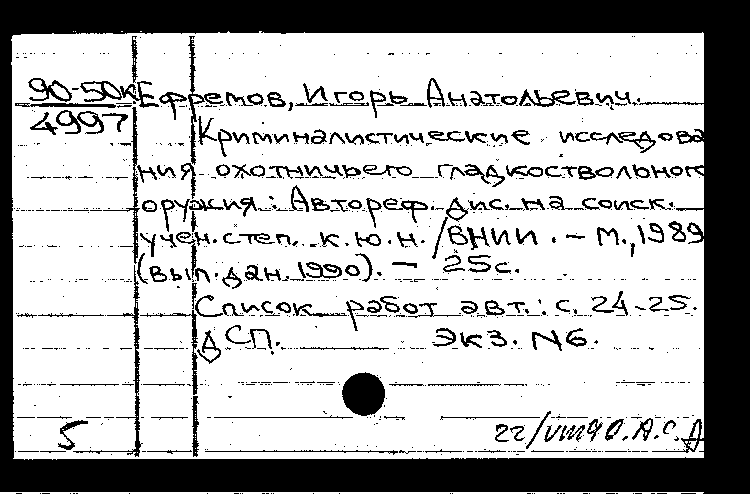 90-50к Ефремов, Игорь Анатольевич.
4997
Криминалистические исследова
ния охотничьего гладкоствольног
оружия : Автореф. дис. на соиск.
учен. степ. к.ю.н. / ВНИИ. – М., 1989
(вып. дан. 1990). – 25с.
Список работ авт.: с. 24-25.
ДСП. Экз. N6.
5 22/VIII90. А.С.Д